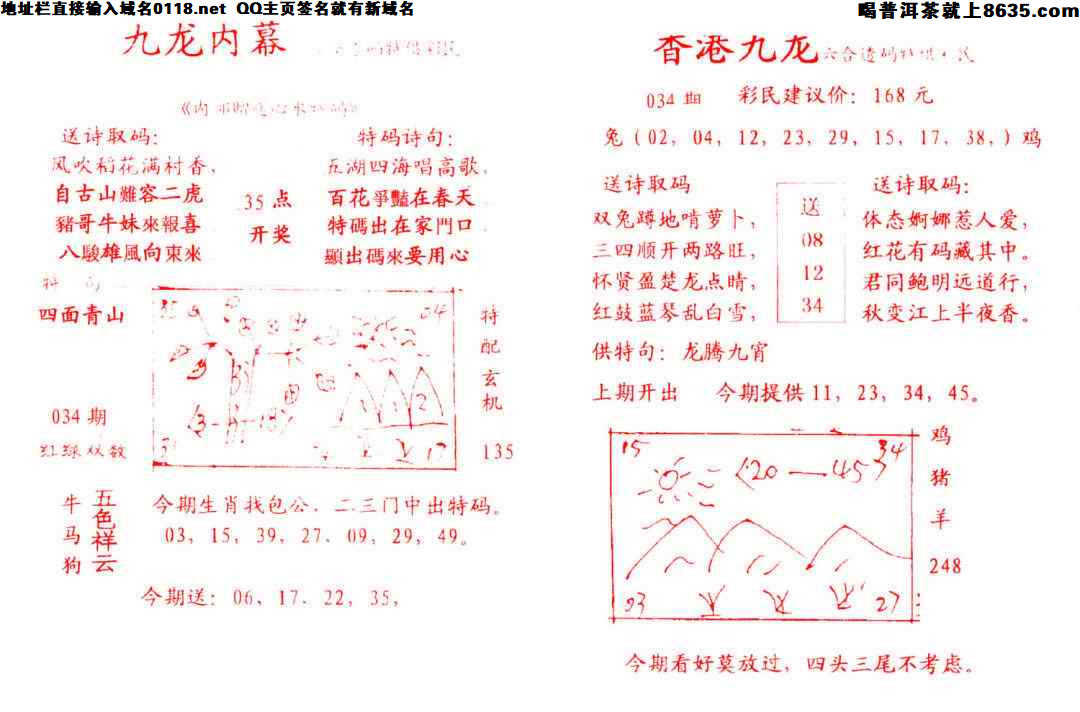 地址栏直接输入域名0118.net QQ主页签名就有新域名
喝普洱茶就上8635.com
九龙内幕
送诗取码：
风吹稻花满村香，
自古山難容二虎
豬哥牛妹來報喜
八駿雄風向東來
35点
开奖
特码诗句：
五湖四海唱高歌，
百花爭豔在春天
特碼出在家門口
顯出碼來要用心
四面青山
034期
红绿双数
35
04
(3-6-18)
1 1 2
17
特
配
玄
机
135
牛
马
狗
五
色
祥
云
今期生肖找包公．二三门中出特码。
03，15，39，27．09，29，49。
今期送：06、17．22，35，
香港九龙
六合透码特供·民
034期
彩民建议价：168元
兔（02，04，12，23，29，15，17，38，）鸡
送诗取码
双兔蹲地啃萝卜，
三四顺开两路旺，
怀贤盈楚龙点睛，
红鼓蓝琴乱白雪，
送
08
12
34
送诗取码：
体态婀娜惹人爱，
红花有码藏其中。
君同鲍明远道行，
秋变江上半夜香。
供特句：龙腾九宵
上期开出 今期提供11，23，34，45。
15
34
20—45
03
27
鸡
猪
羊
248
今期看好莫放过，四头三尾不考虑。